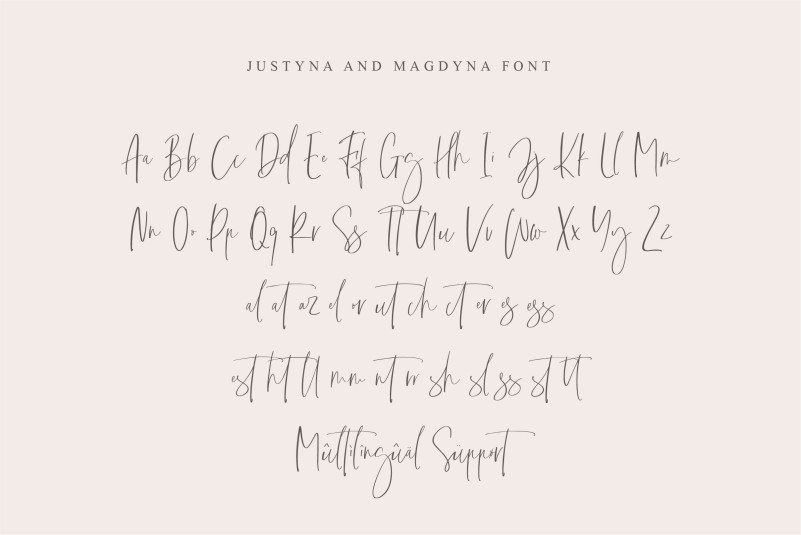 JUSTYNA AND MAGDYNA FONT
Aa Bb Cc Dd Ee Ff Gg Hh Ii Jj Kk Ll Mm
Nn Oo Pp Qq Rr Ss Tt Uu Vv Ww Xx Yy Zz
al at az el or ut ch ct er es ess
est ht ll mm nt rr sh sl ss st tt
Mûltilîngûäl Süppört